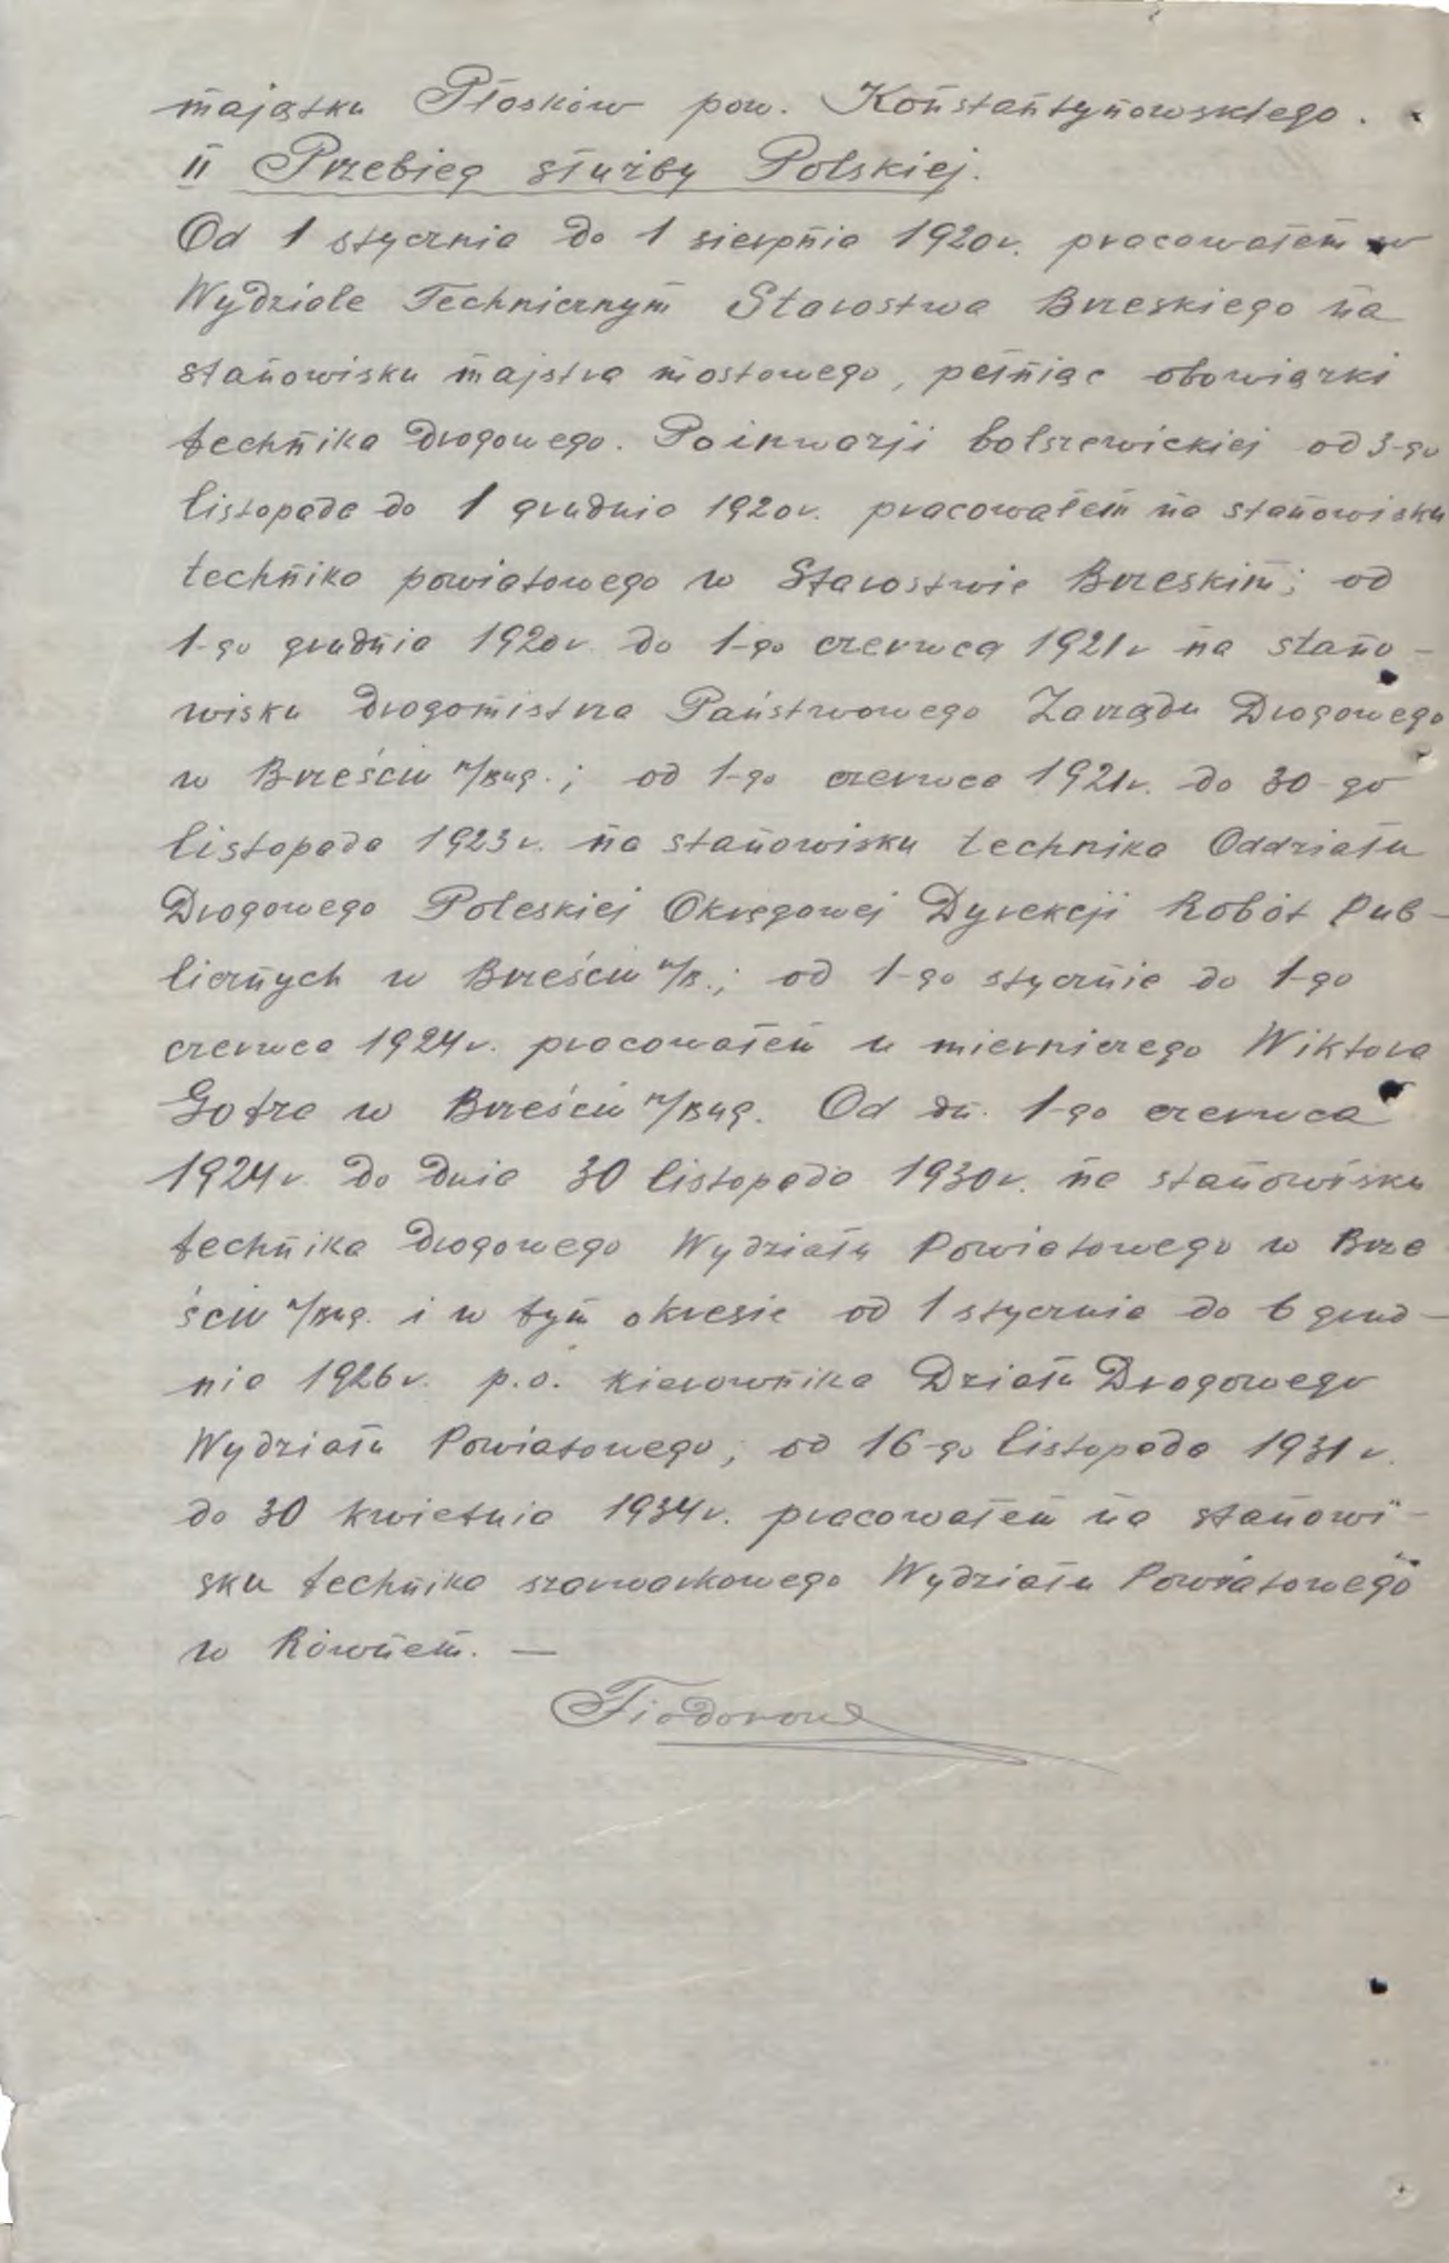 majątku Płosków pow. Konstantynowskiego.
II Przebieg służby Polskiej.
Od 1 stycznia do 1 sierpnia 1920r. pracowałem w
Wydziale Technicznym Starostwa Brzeskiego na
stanowisku majstra mostowego, pełniąc obowiązki
technika drogowego. Po inwazji bolszewickiej od 3-go
listopada do 1 grudnia 1920r. pracowałem na stanowisku
technika powiatowego w Starostwie Brzeskim; od
1-go grudnia 1920r. do 1-go czerwca 1921r na stano-
wisku drogomistrza Państwowego Zarządu Drogowego
w Brześciu n/Bug.; od 1-go czerwca 1921r. do 30-go
listopada 1923r. na stanowisku technika Oddziału
Drogowego Poleskiej Okręgowej Dyrekcji Robót Pub-
licznych w Brześciu n/B.; od 1-go stycznia do 1-go
czerwca 1924r. pracowałem u mierniczego Wiktora
Gotza w Brześciu n/Bug. Od dn. 1-go czerwca
1924r. do dnia 30 listopada 1930r. na stanowisku
technika drogowego Wydziału Powiatowego w Brze
ściu n/Bug. i w tym okresie od 1 stycznia do 6 grud-
nia 1926r. p.o. kierownika Działu Drogowego
Wydziału Powiatowego, od 16-go listopada 1931r.
do 30 kwietnia 1934r. pracowałem na stanowi-
sku technika szarwarkowego Wydziału Powiatowego
w Równem. —
Fiodorow